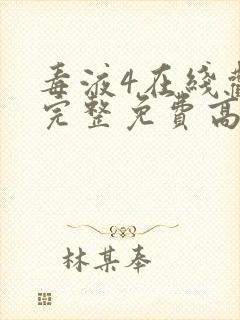 毒液4在线
完整免费高
林某奉